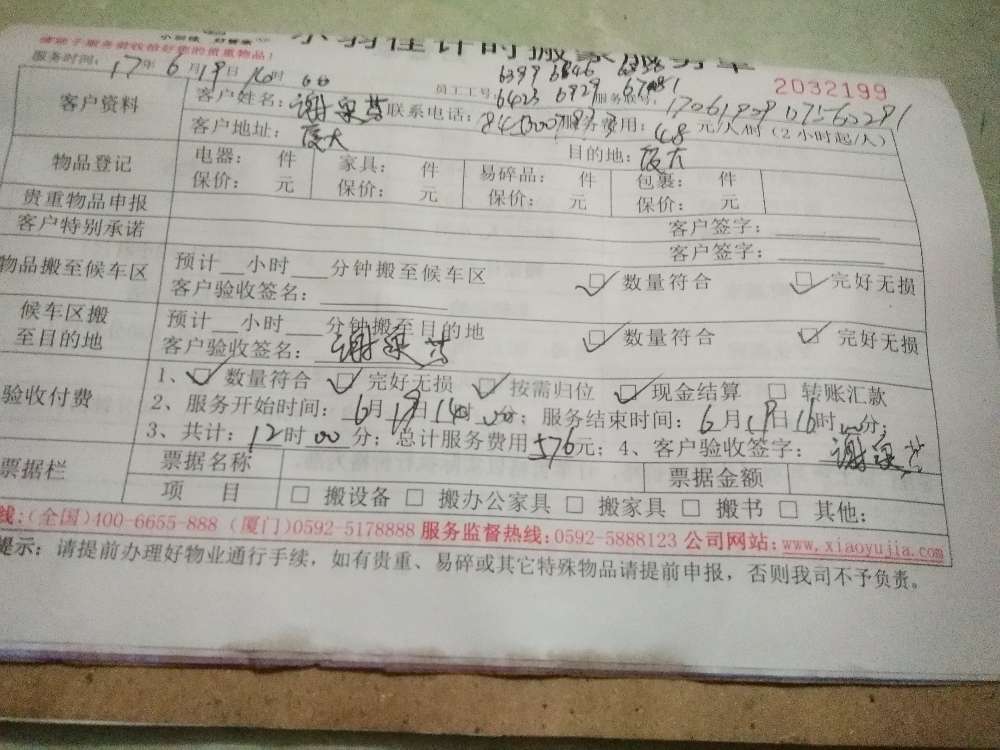 计时搬家服务单
服务时间：17年6月19日 时00
2032199
员工工号：
6423 6929
服务账号：
客户资料
客户姓名：谢 联系电话： 服务费用：48元/人/时（2小时起/人）
客户地址：厦大 目的地：厦大
物品登记
电器： 件 家具： 件 易碎品： 件 包裹： 件
保价： 元 保价： 元 保价： 元 保价： 元
贵重物品申报 客户签字：
客户特别承诺 客户签字：
物品搬至候车区
预计__小时___分钟搬至候车区 数量符合 完好无损
客户验收签名：
候车区搬
至目的地
预计__小时___分钟搬至目的地 数量符合 完好无损
客户验收签名：谢
验收付费
1、数量符合 完好无损 按需归位 现金结算 □ 转账汇款
2、服务开始时间：6月19日14时00分；服务结束时间：6月19日16时00分；
3、共计：12时00分；总计服务费用576元；4、客户验收签字：谢
票据栏
票据名称 票据金额
项 目 □ 搬设备 □ 搬办公家具 □ 搬家具 □ 搬书 □ 其他：
线：(全国)400-6655-888 (厦门)0592-5178888 服务监督热线：0592-5888123 公司网站：www.xiaoyujia.com
提示：请提前办理好物业通行手续，如有贵重、易碎或其它特殊物品请提前申报，否则我司不予负责。